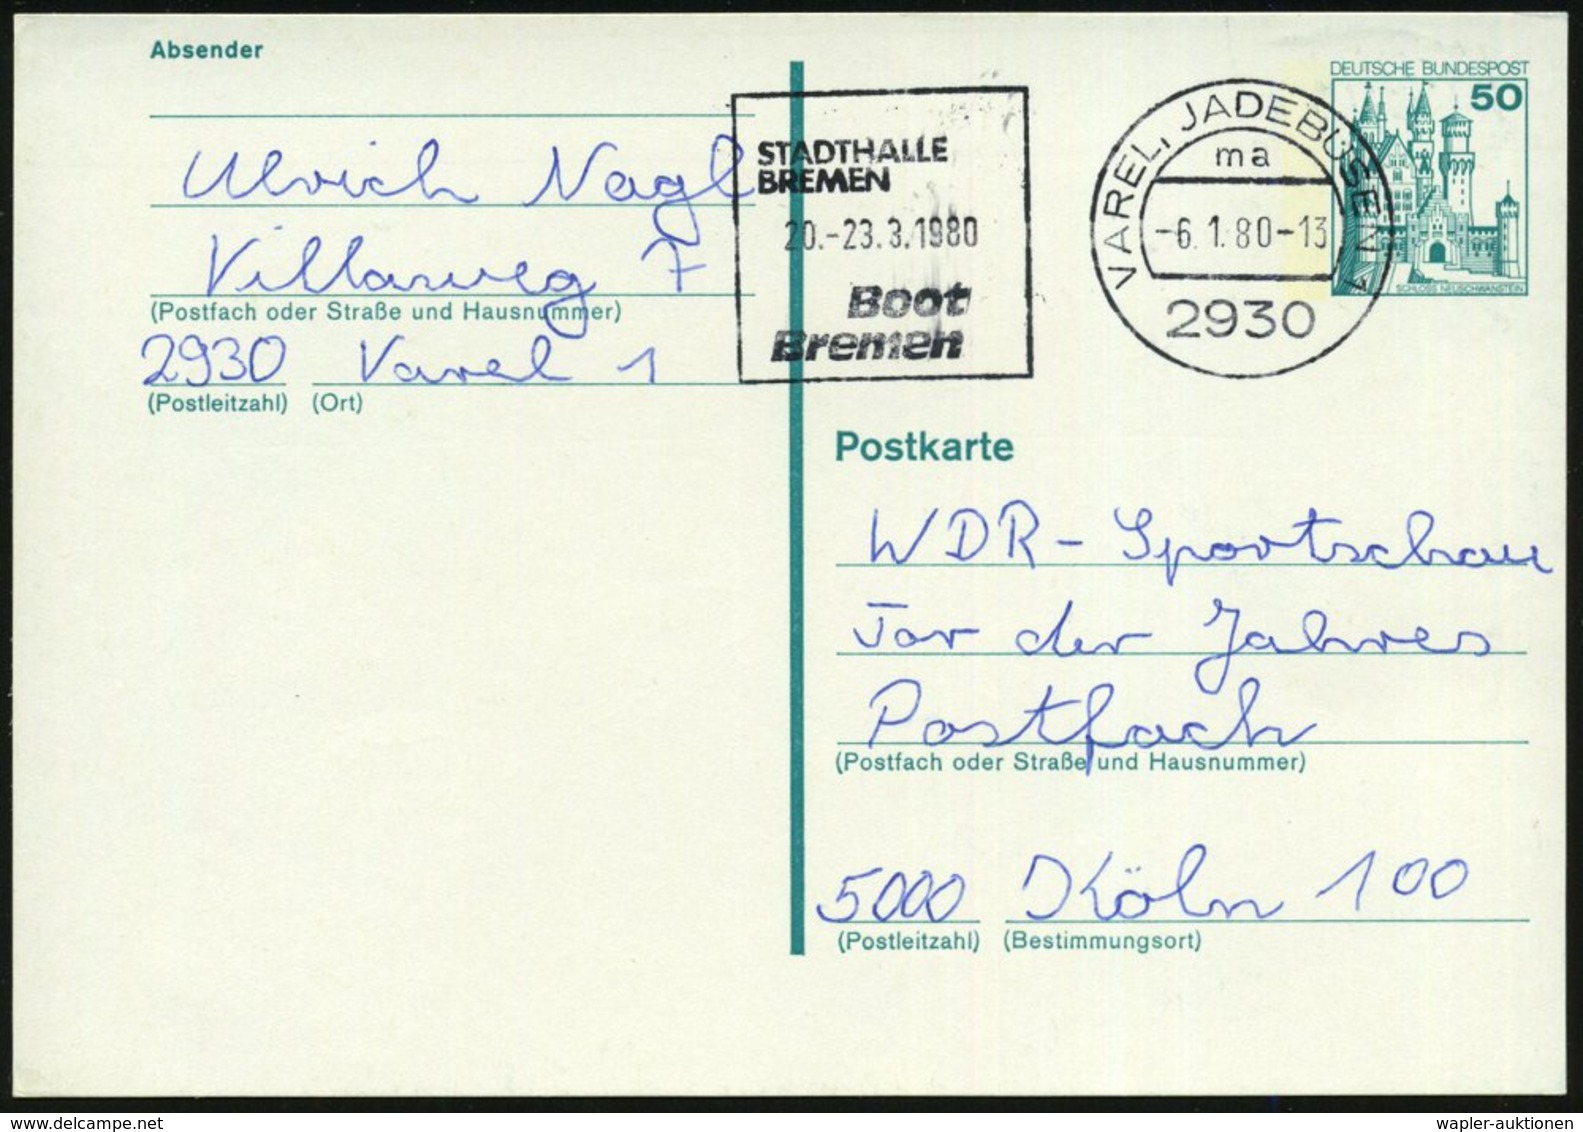 Absender
Ulrich Nagl
Villaweg 7
(Postfach oder Straße und Hausnummer)
2930 Varel 1
(Postleitzahl) (Ort)
STADTHALLE
BREMEN
20.-23.3.1980
Boot
Bremen
VAREL, JADEBUSEN 1
ma
-6.1.80-13
2930
DEUTSCHE BUNDESPOST
50
SCHLOSS NEUSCHWANSTEIN
Postkarte
WDR - Sportschau
Tor der Jahres
Postfach
(Postfach oder Straße und Hausnummer)
5000 Köln 100
(Postleitzahl) (Bestimmungsort)
wapler-auktionen